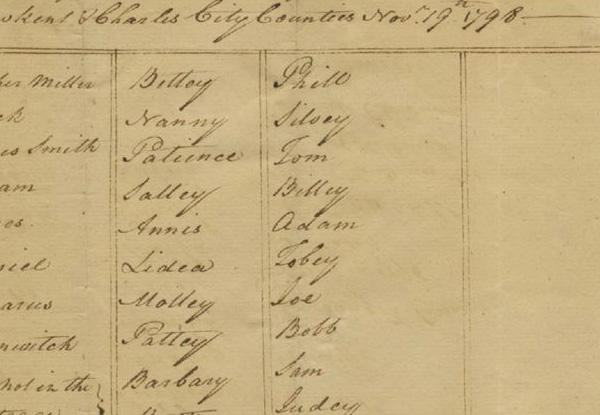 wkent & Charles City Counties Novr. 19th 1798
er Miller Bettey Phill
ck Nanny Silvey
s Smith Patience Tom
am Salley Billey
es Annis Adam
niel Lidea Tobey
arus Molley Joe
nwitch Pattey Bobb
not in the Barbary Sam
Judey